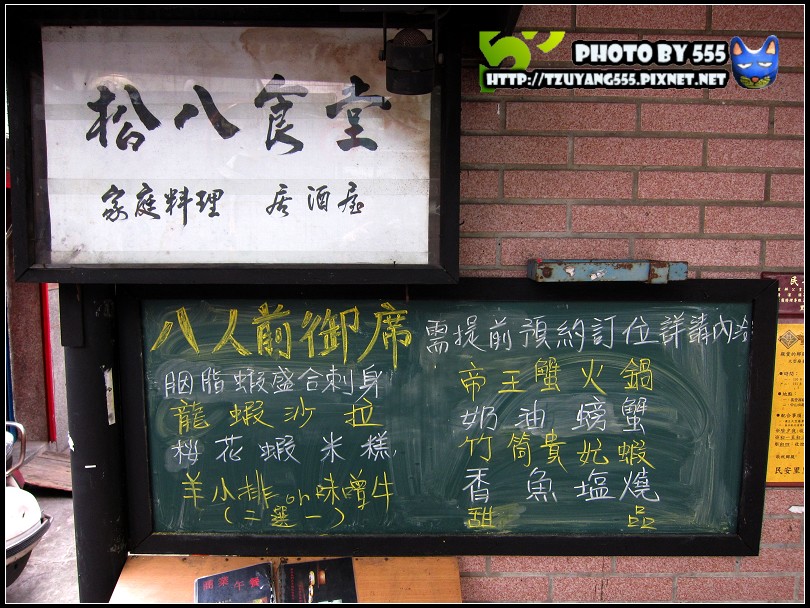 PHOTO BY 555
HTTP://TZUYANG555.PIXNET.NET
松八食堂
家庭料理 居酒屋
八人前御席
需提前預約訂位詳請內洽
胭脂蝦盛合刺身
龍蝦沙拉
桜花蝦米糕
羊小排or味噌牛
(二選一)
帝王蟹火鍋
奶油螃蟹
竹筒貴妃蝦
香魚塩燒
甜品
商業午餐
民安里